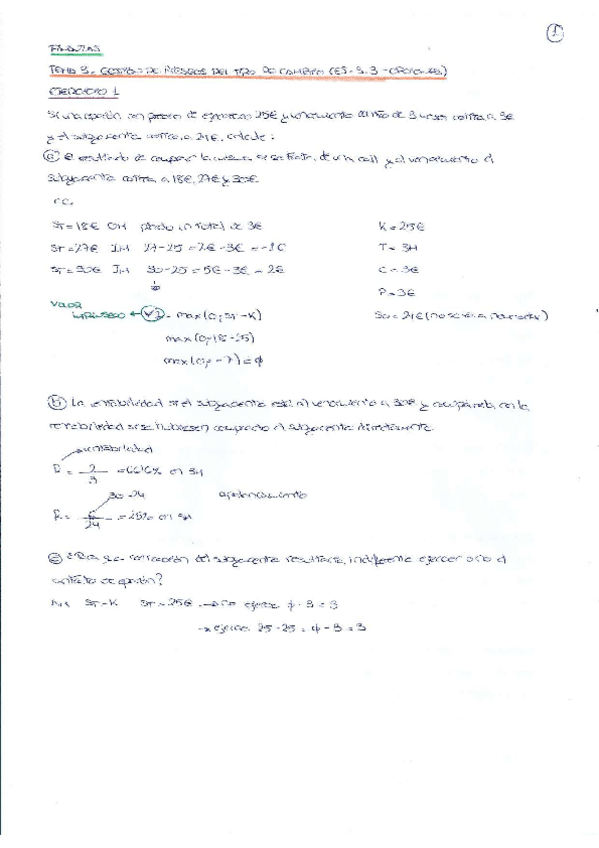 1
FINANZAS
TEMA 3. GESTIÓN DE RIESGOS DEL TIPO DE CAMBIO (ES. 3.3 - OPCIONES)
EJERCICIO 1
Si una opción con precio de ejercicio 25€ y vencimiento dentro de 3 meses cotiza a 3€
y el subyacente cotiza a 24€, calcule:
a) El resultado de comprar la misma si se trata de un call y al vencimiento el
subyacente cotiza a 18€, 27€ y 30€.
ST = 18€ OM pierdo in total de 3€
K = 25€
ST = 27€ IM 27-25 = 2€ - 3€ = -1€
T = 3M
ST = 30€ IM 30-25 = 5€ - 3€ = 2€
C = 3€
P = 3€
VALOR INTRÍNSECO ← VI = max(0; ST-K)
S0 = 24€ (no se va a necesitar)
max(0; 18-25)
max(0; -7) = ϕ
b) La rentabilidad si el subyacente está al vencimiento a 30€ y compárela con la
rentabilidad si se hubiesen comprado el subyacente directamente.
rentabilidad
R = 2/3 = 66'6% en 3M
30-24
apalancamiento
R = 6/24 = 25% en 3M
c) ¿Para qué cotización del subyacente resultaría indiferente ejercer o no el
contrato de opción?
ST-K ST = 25€ → no ejerce ϕ - 3 = 3
→ ejerce 25-25 = ϕ - 3 = 3